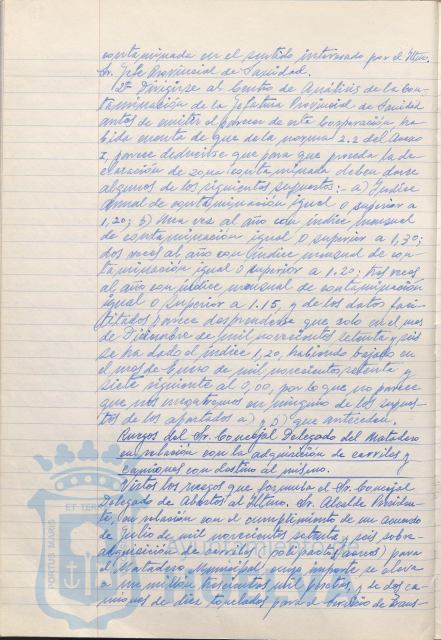 contaminada en el sentido interesado por el Iltmo.
Sr. Jefe Provincial de Sanidad.
2º Dirigirse al Centro de Análisis de la Con-
taminación de la Jefatura Provincial de Sanidad
antes de emitir el parecer de esta Corporación ha-
bida cuenta de que de la norma 2.2 del Anexo
I, parece deducirse que para que proceda la de-
claración de zona contaminada deben darse
algunos de los siguientes supuestos:- a) Indice
anual de contaminación igual o superior a
1,20; b) Una vez al año con indice mensual
de contaminación igual o superior a 1,30;
dos veces al año con indice mensual de con-
taminación igual o superior a 1.20; tres veces
al año con indice mensual de contaminación
igual o superior a 1.15, y de los datos faci-
litados parece desprenderse que solo en el mes
de Diciembre de mil novecientos setenta y seis
se ha dado el indice 1,20, habiendo bajado en
el mes de Enero de mil novecientos setenta y
siete siguiente al 0,00, por lo que no parece
que nos encontremos en ninguno de los supues-
tos de los apartados a) y b) que anteceden.
Ruegos del Sr. Concejal Delegado del Matadero
en relación con la adquisición de carriles y
camiones con destino al mismo.
Vistos los ruegos que formula el Sr. Concejal
Delegado de Abastos al Iltmo. Sr. Alcalde Presiden-
te, en relación con el cumplimiento de un acuerdo
de Julio de mil novecientos setenta y seis sobre
adquisición de carriles para
el Matadero Municipal cuyo importe se eleva
a un millon trescientas mil pesetas y de dos ca-
miones de diez toneladas para el Servicio de Trans-
PORTUS MARIS
ET TERRAE